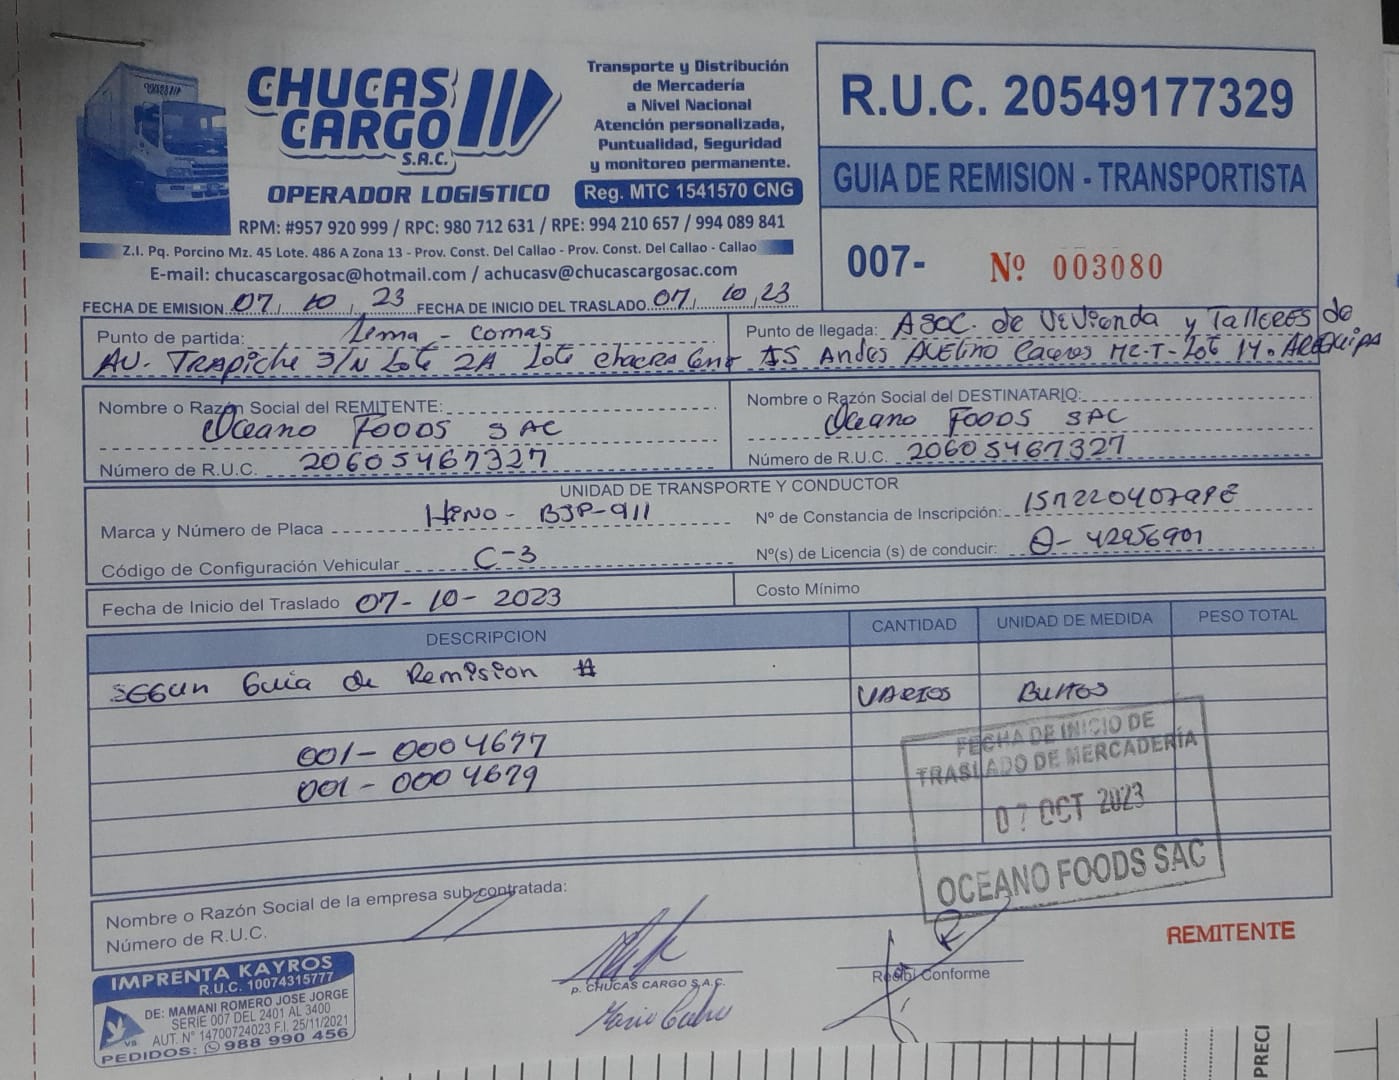 CHUCAS
CARGO
S.A.C.
OPERADOR LOGISTICO
Transporte y Distribución
de Mercadería
a Nivel Nacional
Atención personalizada,
Puntualidad, Seguridad
y monitoreo permanente.
Reg. MTC 1541570 CNG
RPM: #957 920 999 / RPC: 980 712 631 / RPE: 994 210 657 / 994 089 841
Z.I. Pq. Porcino Mz. 45 Lote. 486 A Zona 13 - Prov. Const. Del Callao - Prov. Const. Del Callao - Callao
E-mail: chucascargosac@hotmail.com / achucasv@chucascargosac.com
R.U.C. 20549177329
GUIA DE REMISION - TRANSPORTISTA
007- Nº 003080
FECHA DE EMISION 07, 10, 23 FECHA DE INICIO DEL TRASLADO 07, 10, 23
Punto de partida: Lima - Comas
AV. TRAPiche S/N Lote 2A Lote chacra
Punto de llegada: ASOC. de Vivienda y Talleres de
Andes AVELINO Caceres MZ-T-Lot 14. AREQUIPA
Nombre o Razón Social del REMITENTE:
Oceano FOODS SAC
Número de R.U.C. 20605467327
Nombre o Razón Social del DESTINATARIO:
Oceano FOODS SAC
Número de R.U.C. 20605467327
UNIDAD DE TRANSPORTE Y CONDUCTOR
Marca y Número de Placa HINO - BJP-911
Nº de Constancia de Inscripción:
Código de Configuración Vehicular C-3
Nº(s) de Licencia (s) de conducir: Q- 42956901
Fecha de Inicio del Traslado 07-10-2023
Costo Mínimo
DESCRIPCION CANTIDAD UNIDAD DE MEDIDA PESO TOTAL
SEGUN Guia de Remision #
VARIOS Bultos
001-0004677
001-0004679
FECHA DE INICIO DE
TRASLADO DE MERCADERÍA
07 OCT 2023
OCEANO FOODS SAC
Nombre o Razón Social de la empresa sub contratada:
Número de R.U.C.
REMITENTE
P. CHUCAS CARGO S.A.C.
Recibí Conforme
IMPRENTA KAYROS
R.U.C. 10074315777
DE: MAMANI ROMERO JOSE JORGE
SERIE 007 DEL 2401 AL 3400
AUT. Nº 14700724023 F.I. 25/11/2021
PEDIDOS: 988 990 456
VB
PRECI